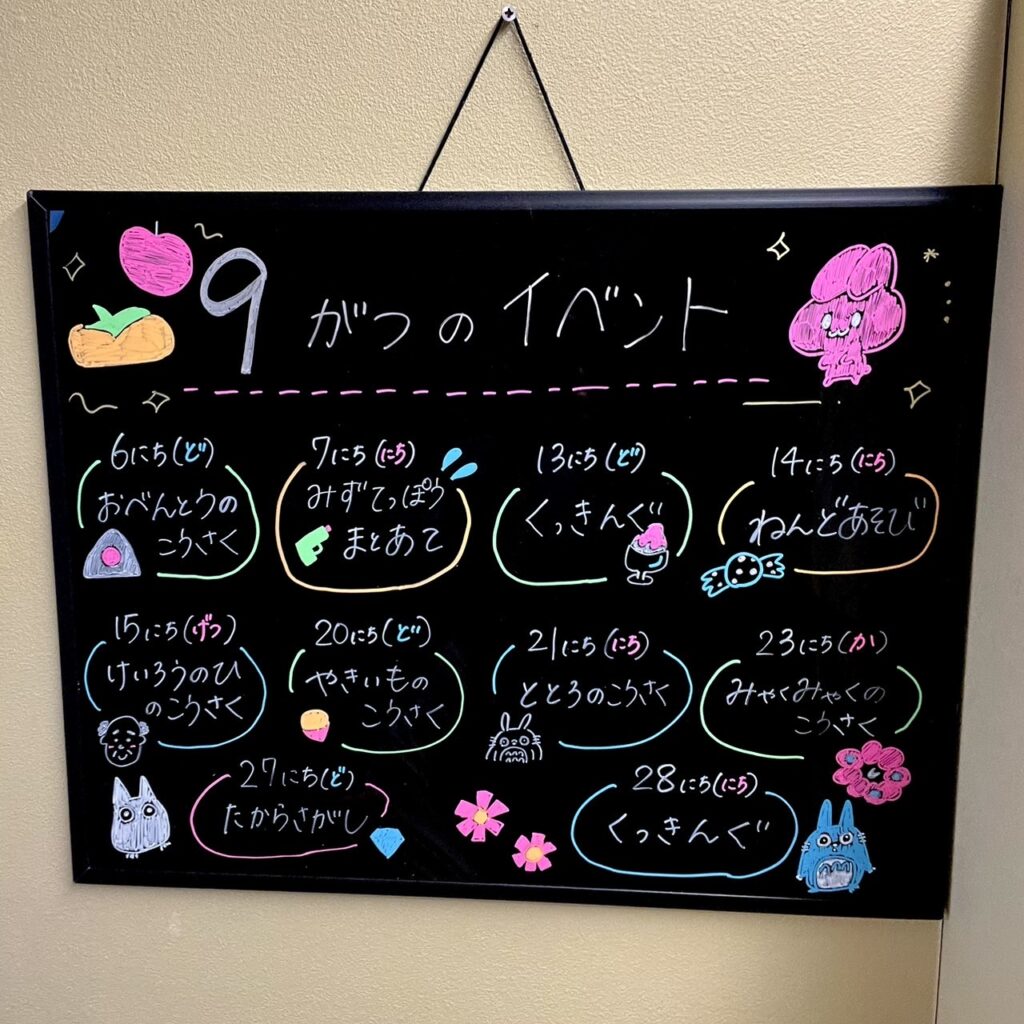 9がつのイベント
6にち(ど)
おべんとうの
こうさく
7にち(にち)
みずてっぽう
まとあて
13にち(ど)
くっきんぐ
14にち(にち)
ねんどあそび
15にち(げつ)
けいろうのひ
のこうさく
20にち(ど)
やきいもの
こうさく
21にち(にち)
ととろのこうさく
23にち(か)
みゃくみゃくの
こうさく
27にち(ど)
たからさがし
28にち(にち)
くっきんぐ